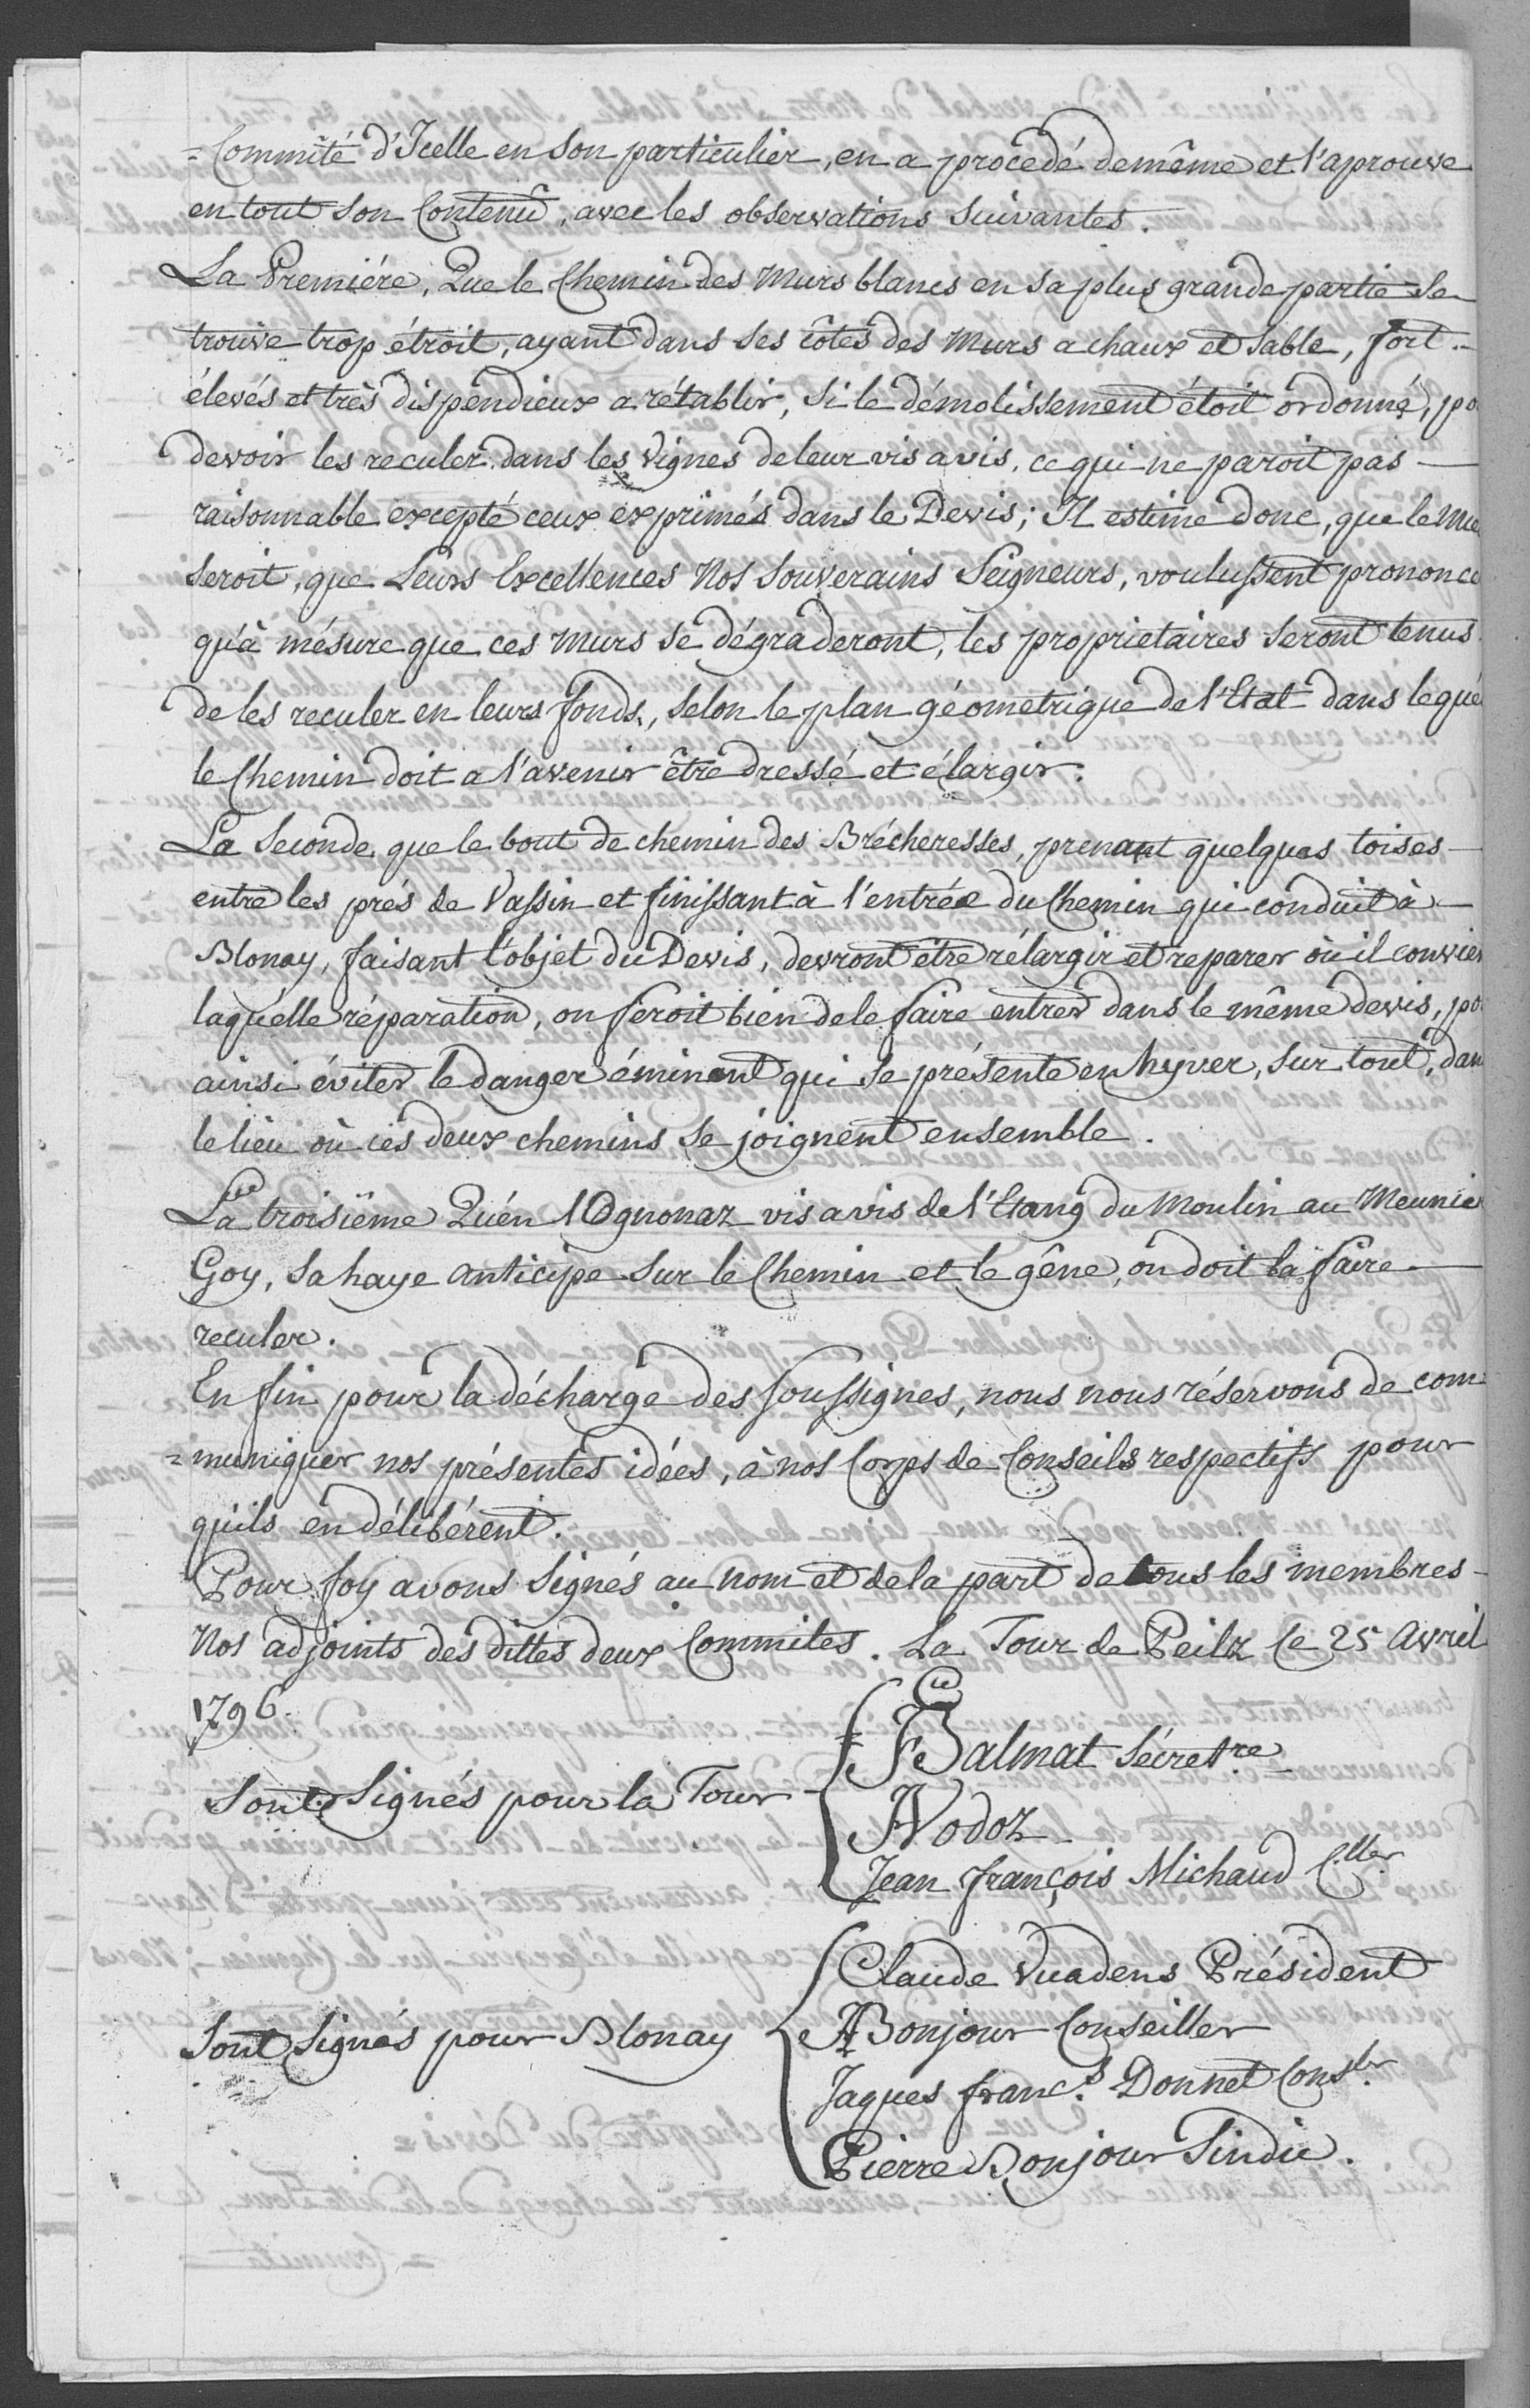 =Committé d'Icelle en son particulier, en a procédé demême et l'aprouve
en tout son Contenû, avec les observations suivantes.
La Premiére, Que le Chemin des Murs blancs en sa plus grande partie se
trouve trop étroit, ayant dans ses côtés des Murs a chaux et Sable, fort
élevés et très dispendieux a rétablir, Si le démolissement étoit ordonné, po
devoir les reculer dans les Vignes de leur vis avis, ce qui ne paroit pas
raisonnable excepté ceux exprimés dans le Devis; Il estime donc, que le Mie
seroit, que Leurs Excellences Nos Souverains Seigneurs, voulussent prononce
qu'à mésure que ces Murs se dégraderont, les proprietaires seront tenus
de les reculer en leurs fonds, selon le plan géometrique de l'Etat dans leque
le Chemin doit a l'avenir être dressé et élargir.
La Seconde, que le bout de chemin des Brécheresses, prenant quelques toises
entre les prés de Vassin et finissant à l'entrée du Chemin qui conduit à
Blonay, faisant l'objet du Devis, devront être rélargir et reparer où il convien
laquelle réparation, on feroit bien de le faire entrer dans le même devis, po
ainsi éviter le danger éminent qui se présente en hyver, sur tout, dan
le lieu où ces deux chemins se joignent ensemble.
La troisiême Qu'en l'Ognonaz vis avis de l'Etang du Moulin au Meunier
Goy, sa haye anticipe sur le Chemin et le gêne, on doit la faire
reculer.
En fin pour la décharge des soussignes, nous nous réservons de com=
=muniquer nos présentes idées, à nos Corps de Conseils respectifs pour
quils en délibérent.
Pour foy avons Signés au nom et de la part de tous les membres
Nos adjoints des dittes deux Commites. La Tour de Peilz le 25 Avril
1796.
Sont Signés pour la Tour
F Balmat Sécretre
Vodoz
Jean François Michaud Cller
Sont Signés pour Blonay
Claude Vuadens Président
A Bonjour Conseiller
Jaques Francs Donnet Conslr
Pierre Bonjour Sindic.